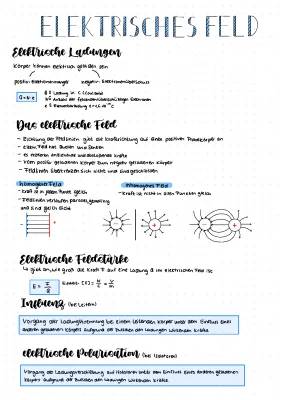 ELEKTRISCHES FELD
Elektrische Ladungen
Körper können elektrisch geladen sein
positiv: Elektronenmangel negativ: Elektronenüberschuss
Q = N · e
Q = Ladung in C (Coulomb)
N = Anzahl der
e = Elementarladung
Das elektrische Feld
- Richtung der Feldlinien gibt die Kraftrichtung auf einen positiven Probekörper an
- elektr. Feld hat Quellen und Senken
- es existieren anziehende und abstoßende Kräfte
- vom positiv geladenen Körper zum negativ geladenen Körper
- Feldlinien überkreuzen sich nicht und sind geschlossen
homogenes Feld
- Kraft ist in jedem Punkt gleich
- Feldlinien verlaufen parallel, geradlinig
und sind gleich dicht
inhomogenes Feld
- Kraft ist nicht in allen Punkten gleich
Elektrische Feldstärke
↳ gibt an, wie groß die Kraft F auf eine Ladung Q im elektrischen Feld ist
E = F/Q
Einheit: [E] = N/C = V/m
Influenz (bei Leitern)
Vorgang der Ladungstrennung bei einem leitenden Körper unter dem Einfluss eines
anderen geladenen Körpers aufgrund der zwischen den Ladungen wirkenden Kräfte
elektrische Polarisation (bei Isolatoren)
Vorgang der Ladungsverschiebung auf Isolatoren unter dem Einfluss eines anderen geladenen
Körpers aufgrund der zwischen den Ladungen wirkenden Kräfte